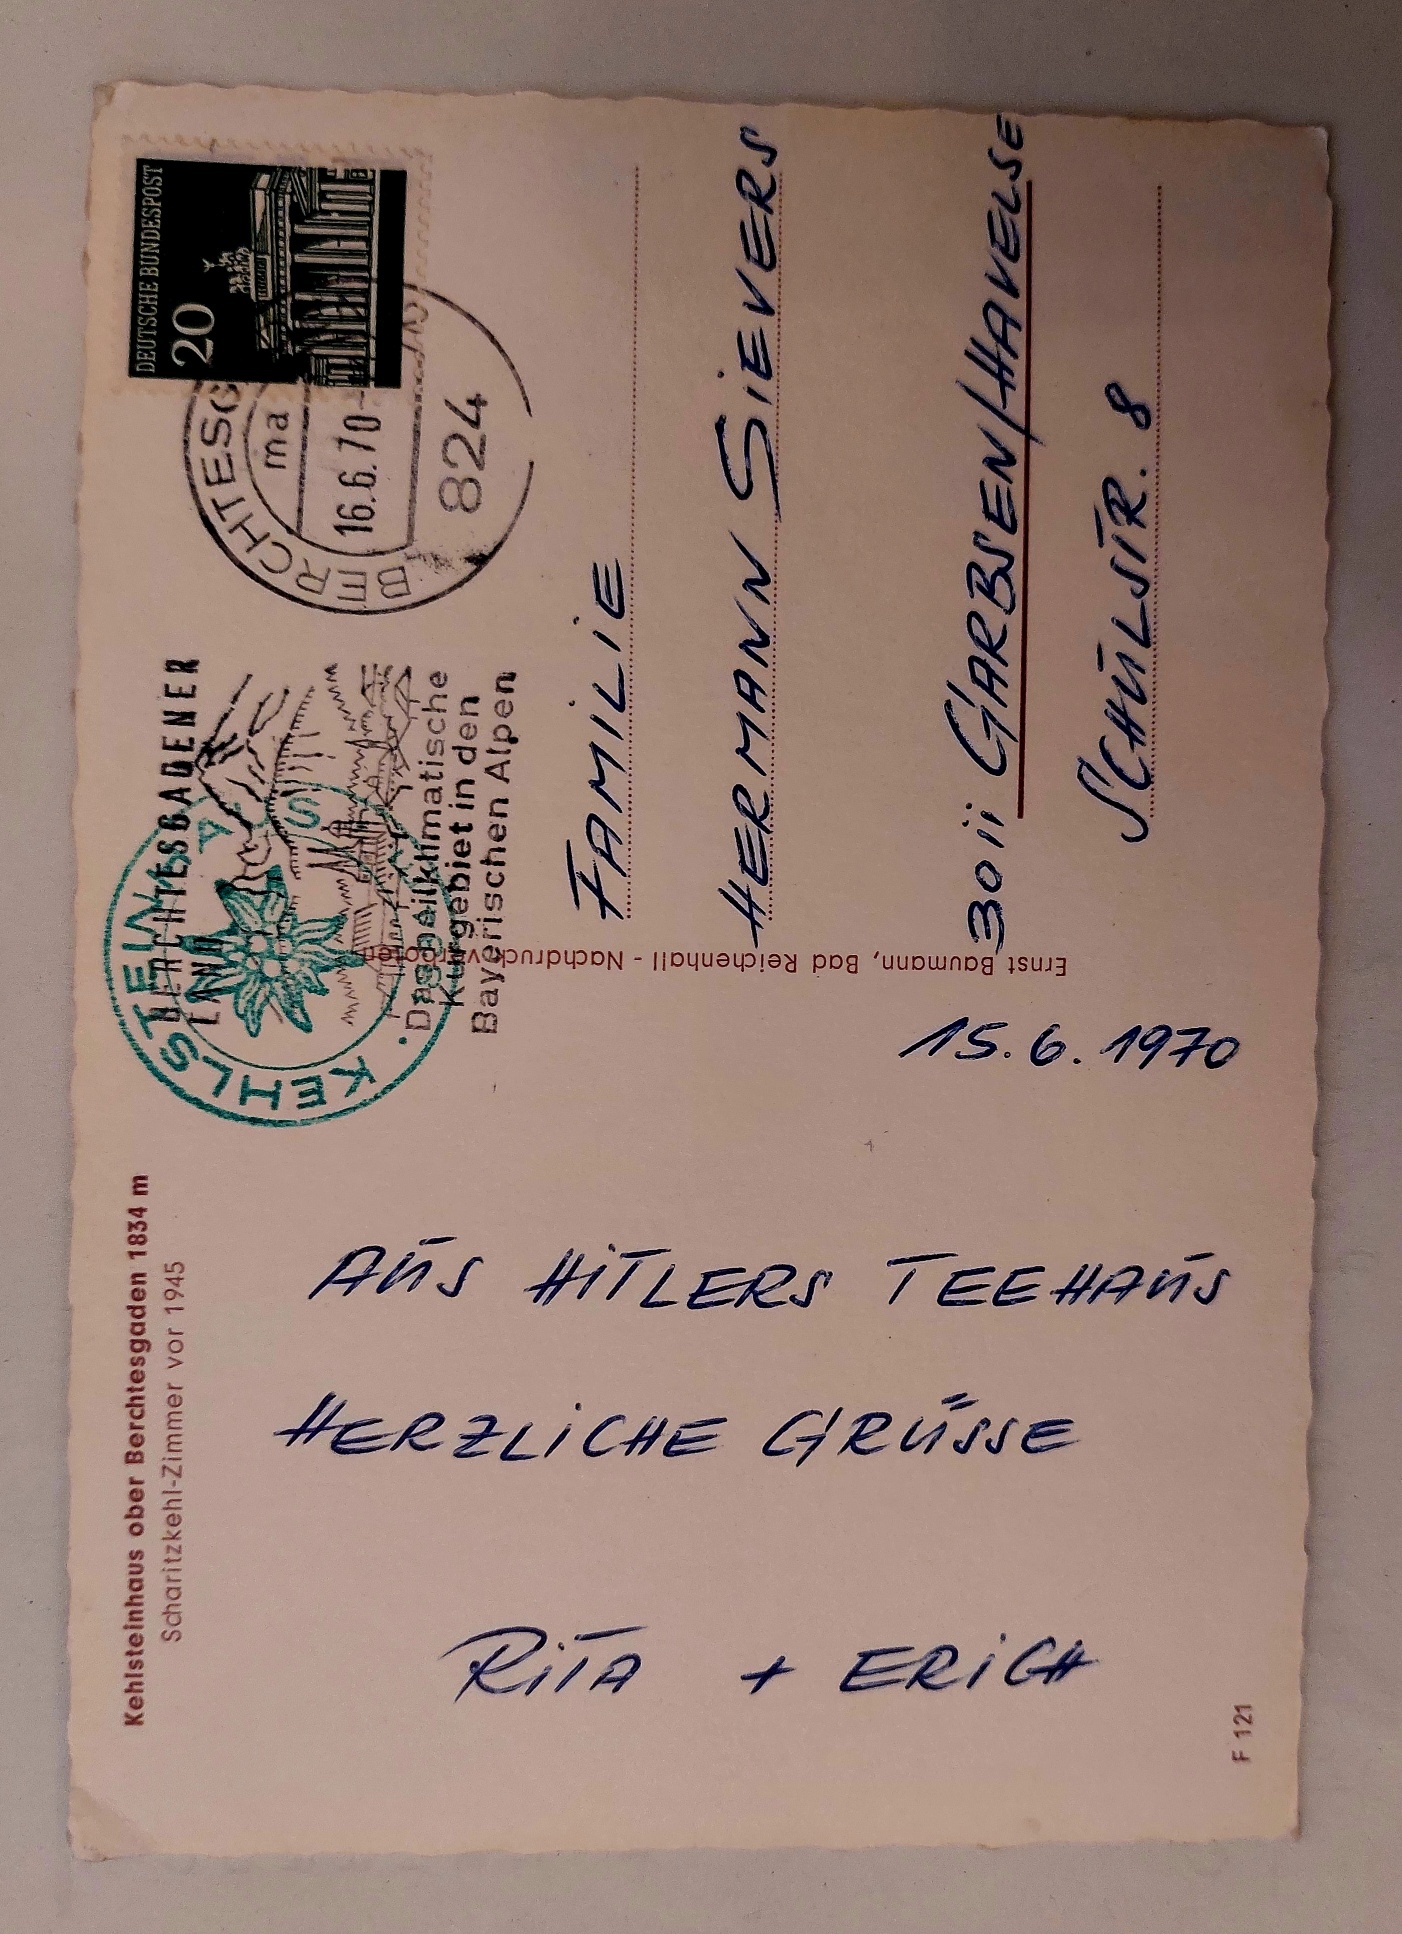 Kehlsteinhaus ober Berchtesgaden 1834 m
Scharitzkehl-Zimmer vor 1945
15.6.1970
AUS HITLERS TEEHAUS
HERZLICHE GRÜSSE
RITA + ERICH
F 121
Ernst Baumann, Bad Reichenhall - Nachdruck verboten
KEHLSTEINHAUS
BERCHTESGADENER
LAND
Das heilklimatische
Kurgebiet in den
Bayerischen Alpen
BERCHTESG
ma
16.6.70-
824
DEUTSCHE BUNDESPOST
20
FAMILIE
HERMANN SIEVERS
3011 GARBSEN/HAVELSE
SCHULSTR. 8